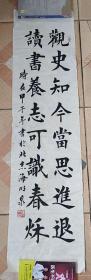 觀史知今當思進退
讀書養志可識春秋
時在甲午年書於北京海